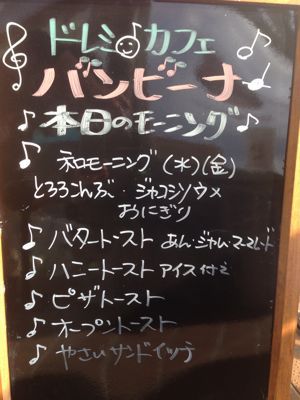 ドレミ カフェ
バンビーナ
本日のモーニング
和モーニング (水)(金)
とろろこんぶ・ジャコシソウメ
おにぎり
バタートースト あん・ジャム・マーマレード
ハニートースト アイス付
ピザトースト
オープントースト
やさいサンドイッチ